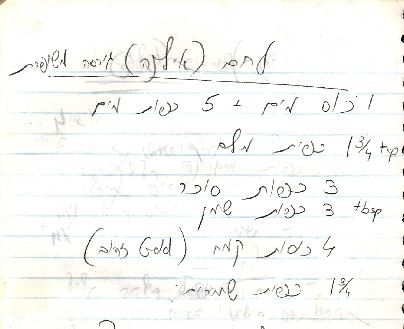 לחם (אילנה) גירסה משופרת
1 כוס מים + 5 כפות מים
1 3/4 כפית מלח tsp
3 כפות סוכר
3 כפות שמן tbsp
4 כוסות קמח
1 3/4 כפית שמרים